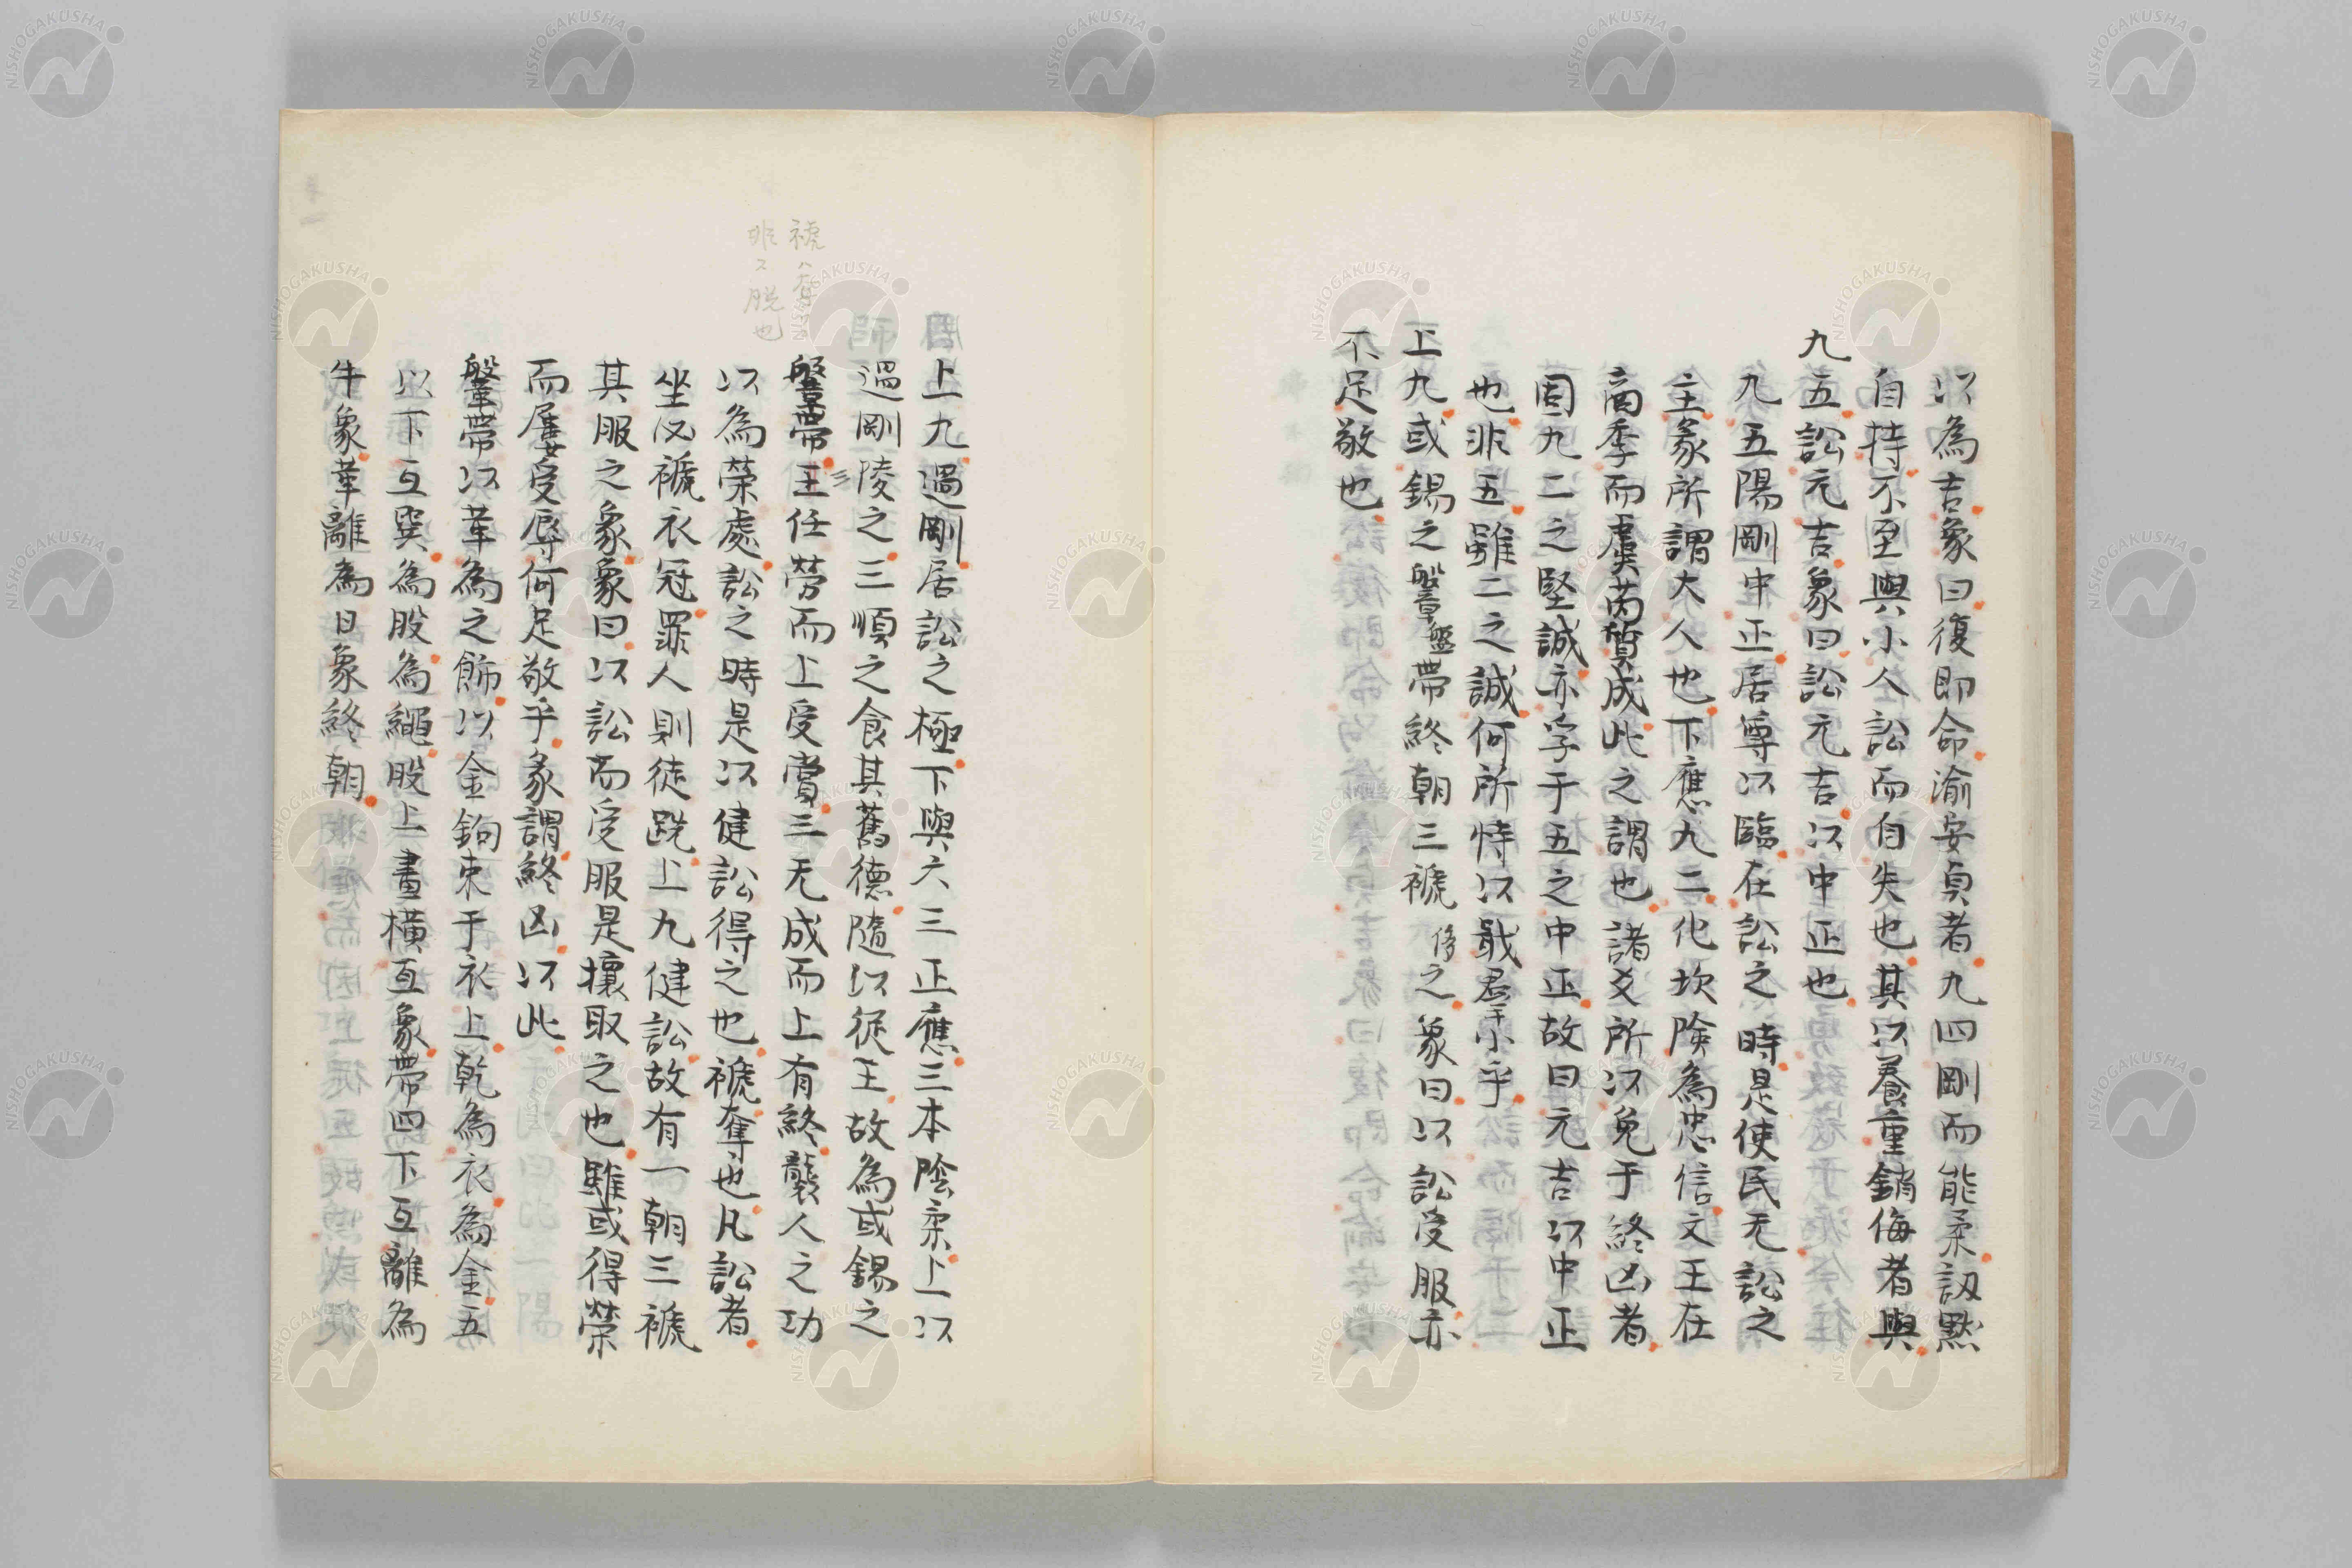 以為吉象曰復即命渝安貞者九四剛而能柔訒黙
自持不至與小人訟而自失也其以養重銷侮者與
九五訟元吉象曰訟元吉以中正也
九五陽剛中正居尊以臨在訟之時是使民无訟之
主彖所謂大人也下應九二化坎險為忠信文王在
商季而虞芮質成此之謂也諸爻所以免于終凶者
固九二之堅誠亦孚于五之中正故曰元吉以中正
也非五雖二之誠何所恃以戢羣小乎
上九或錫之鞶盤帶終朝三褫侈之象曰以訟受服亦
不足敬也
上九過剛居訟之極下與六三正應三本陰柔上以
過剛陵之三順之食其舊德隨以從王故為或錫之
鞶帶三王任勞而上受賞三无成而上有終襲人之功
以為榮處訟之時是以健訟得之也褫奪也凡訟者
坐以褫衣冠罪人則徒跣上九健訟故有一朝三褫
其服之象象曰以訟而受服是攘取之也雖或得榮
而屢受辱何足敬乎彖謂終凶以此
鞶帶以革為之飾以金鉤束于衣上乾為衣為金五
以下互巽為股為繩股上畫橫互象帶四下互離為
牛象革離為日象終朝
褫ハ奪
非ス脱也
NISHOGAKUSHA